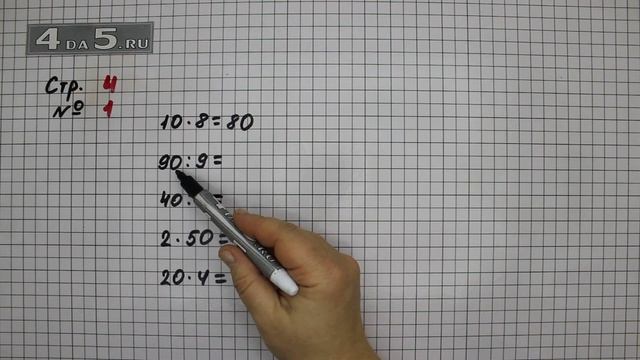 4DA5.RU
Стр. 4
№ 1
10 · 8 = 80
90 : 9 =
40 · =
2 · 50 =
20 · 4 =